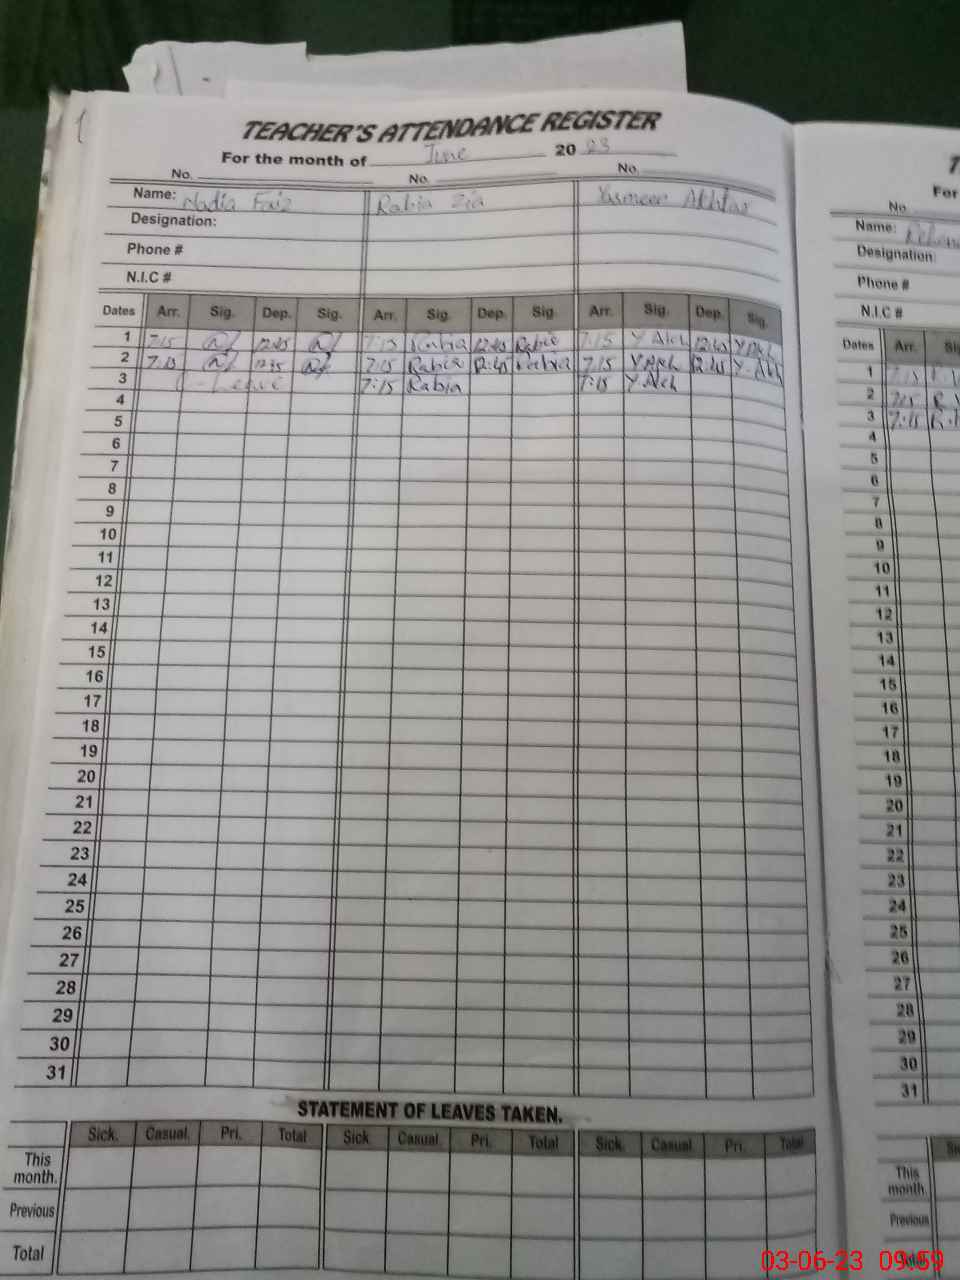 TEACHER'S ATTENDANCE REGISTER
For the month of June 20 23
No. No. No.
Name: Nadia Faiz Rabia Zia Yasmeen Akhtar
Designation:
Phone #
N.I.C #
Dates Arr. Sig. Dep. Sig. Arr. Sig. Dep. Sig. Arr. Sig. Dep. Sig.
1 7:15 12:45 7:15 Rabia 12:45 Rabia 7:15 Y Akh 12:45 Y Akh
2 7:15 12:45 7:15 Rabia 12:45 Rabia 7:15 Y Akh 12:45 Y. Akh
3 Leave 7:15 Rabia 7:15 Y Akh
4
5
6
7
8
9
10
11
12
13
14
15
16
17
18
19
20
21
22
23
24
25
26
27
28
29
30
31
STATEMENT OF LEAVES TAKEN.
Sick. Casual. Pri. Total Sick. Casual. Pri. Total Sick. Casual Pri. Total
This month.
Previous
Total
For
No
Name:
Designation:
Phone #
N.I.C #
Dates Arr.
1 7:15
2 7:15
3 7:15
4
5
6
7
8
9
10
11
12
13
14
15
16
17
18
19
20
21
22
23
24
25
26
27
28
29
30
31
This month.
Previous
Total
03-06-23 09:59